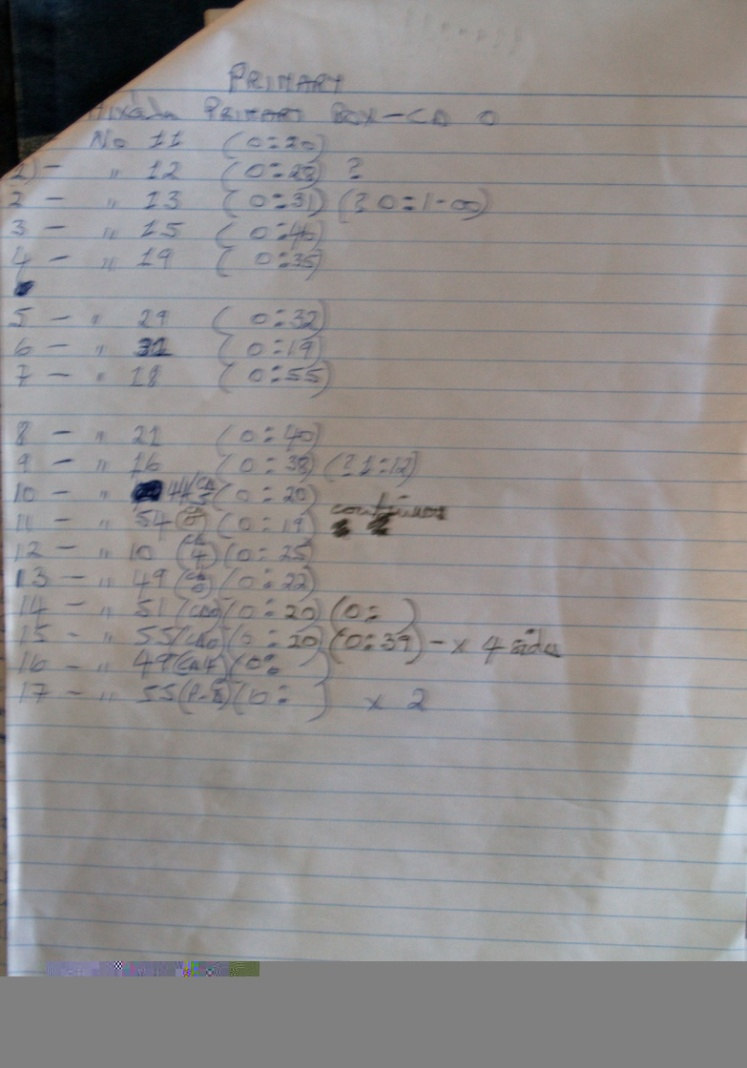 PRIMARY
PRIMARY BOX-CD 0
No 11 (0:20)
1) - " 12 (0:28) ?
2 - " 13 (0:31) (? 0:1-00)
3 - " 15 (0:40)
4 - " 19 (0:35)
5 - " 29 (0:32)
6 - " 31 (0:19)
7 - " 18 (0:55)
8 - " 21 (0:40)
9 - " 16 (0:38) (? 1:12)
10 - " 44 (0:20)
11 - " 54 (0:19)
12 - " 10 (CD 4) (0:25)
13 - " 49 (CD 0) (0:22)
14 - " 51 (CD0) (0:20) (0: )
15 - " 55 (CD0) (0:20) (0:39) - x 4
16 - " 49 (0: )
17 - " 55 (0: ) x 2